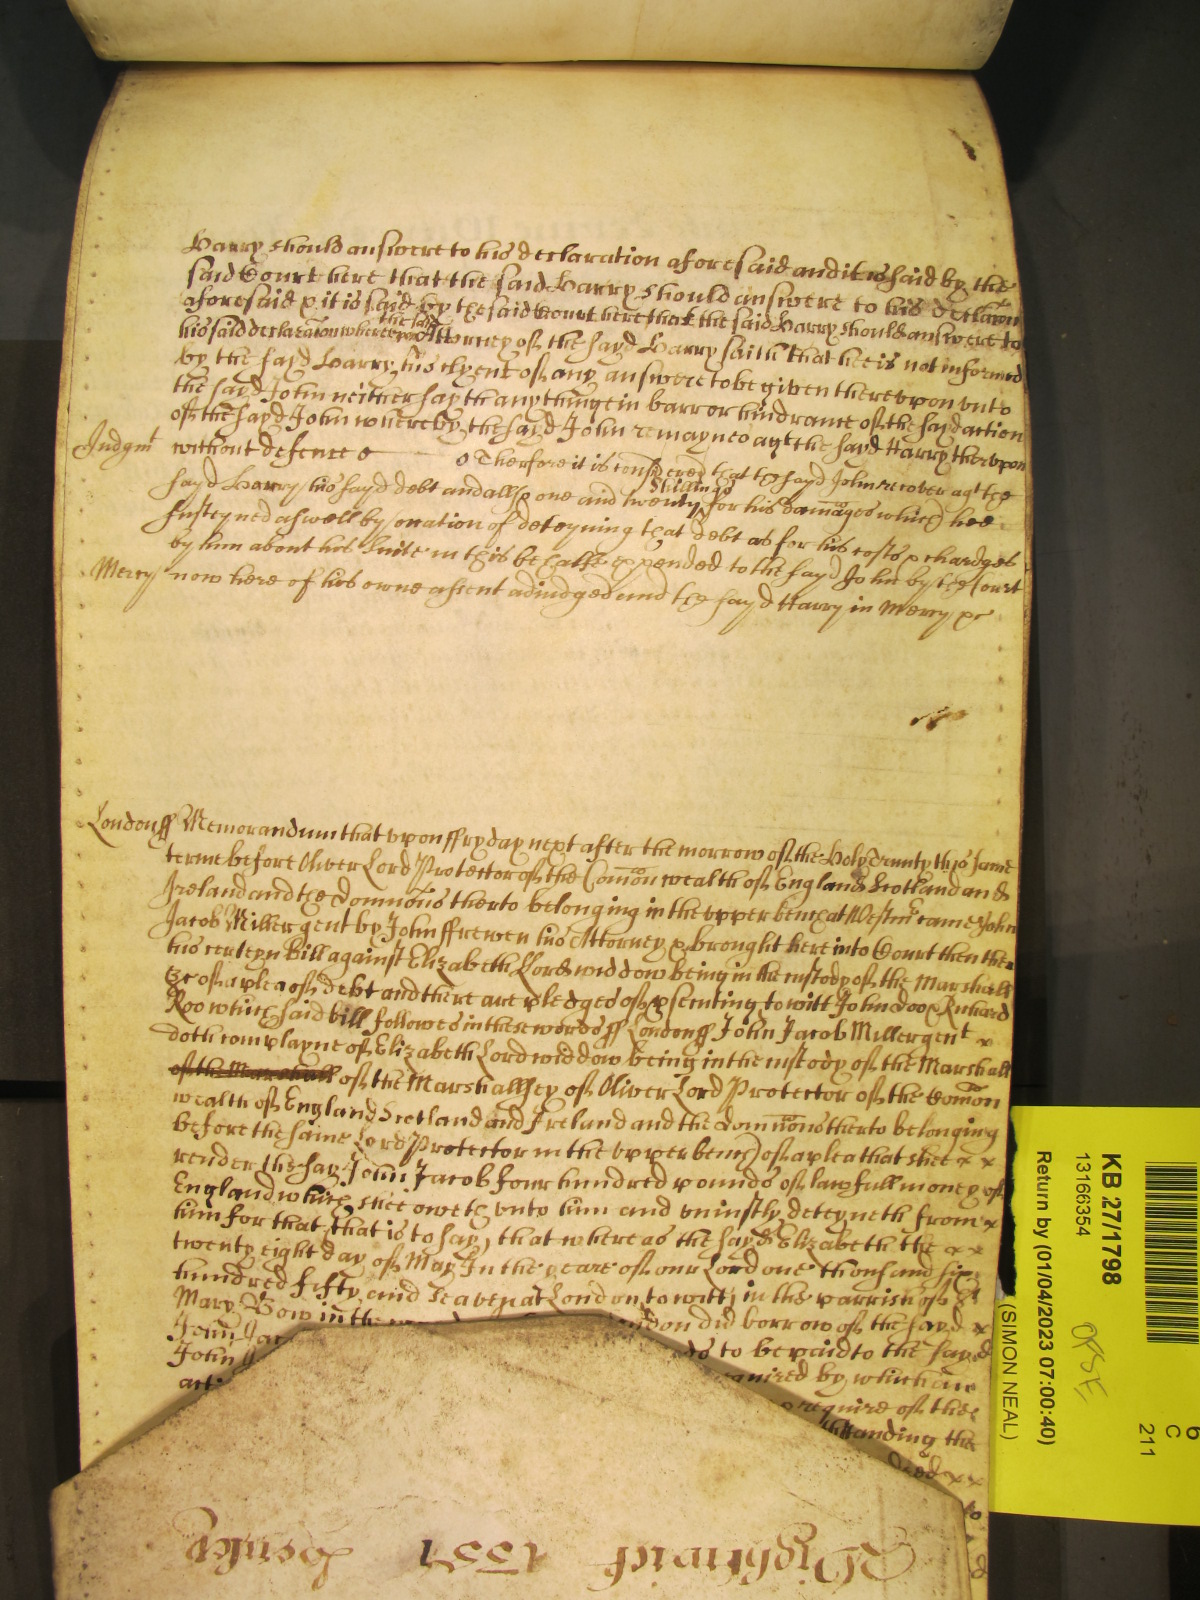 Harry should answere to his declaration aforesaid and it is said by the
said Court here that the said Harry should answere to his declaracon
aforesaid & it is said by the said Court here that the said Harry should answere to
his said declaracon whereupon the said Attorney of the sayd Harry saith that hee is not informed
by the sayd Harry his clyent of any answere to be given therevpon vnto
the sayd John neither sayth any thinge in barr or hindrance of the sayd action
of the sayd John whereby the sayd John remaynes agt the sayd Harry thervpon
Judgmt without defence Therfore it is considered that the sayd John recover agt the
sayd Harry his sayd debt and allso one and twenty Shillings for his damages which hee
susteyned aswell by occation of deteyning that debt as for his costs & chardges
by him about his suite in this behalfe expended to the sayd John by the Court
Mercy now here of his owne assent adiudged and the sayd Harry in Mercy &c
London ss Memorandum that vpon ffryday next after the morrow of the Holy Trinity this same
terme before Oliver Lord Protector of the Comon wealth of England Scotland and
Ireland and the Dominions therto belonging in the vpper bench at Westmr came John
Jacob Miller gent by John ffrewen his Attorney & brought here into Court then there
his certeyn Bill against Elizabeth Lord widdow being in the custody of the Marshall
&c of a plea of debt and there are pledges of prsecuting to witt John doo & Richard
Roo which said bill followes in these words ss London ss John Jacob Miller gent x
doth complayne of Elizabeth Lord widdow being in the custody of the Marshall
of the Marshall of the Marshallsey of Oliver Lord Protector of the Comon
wealth of England Scotland and Ireland and the Dominions therto belonging
before the same Lord Protector in the vpper bench of a plea that shee x x
render the say John Jacob four hundred pounds of lawfull money of
England which shee oweth vnto him and vniustly deteyneth from x
him for that, that is to say, that where as the sayd Elizabeth the x x
twenty eight day of May In the yeare of our Lord one thousand six
hundred fifty and Seaven at London to witt in the parrish of St
Mary Bow in the London did borrow of the sayd x
John Jac to be paid to the sayd
John quired by which an
acti require of the
standing the
x x
Wightwick 1557
KB 27/1798
13166354
Return by (01/04/2023 07:00:40)
(SIMON NEAL)
6
C
211